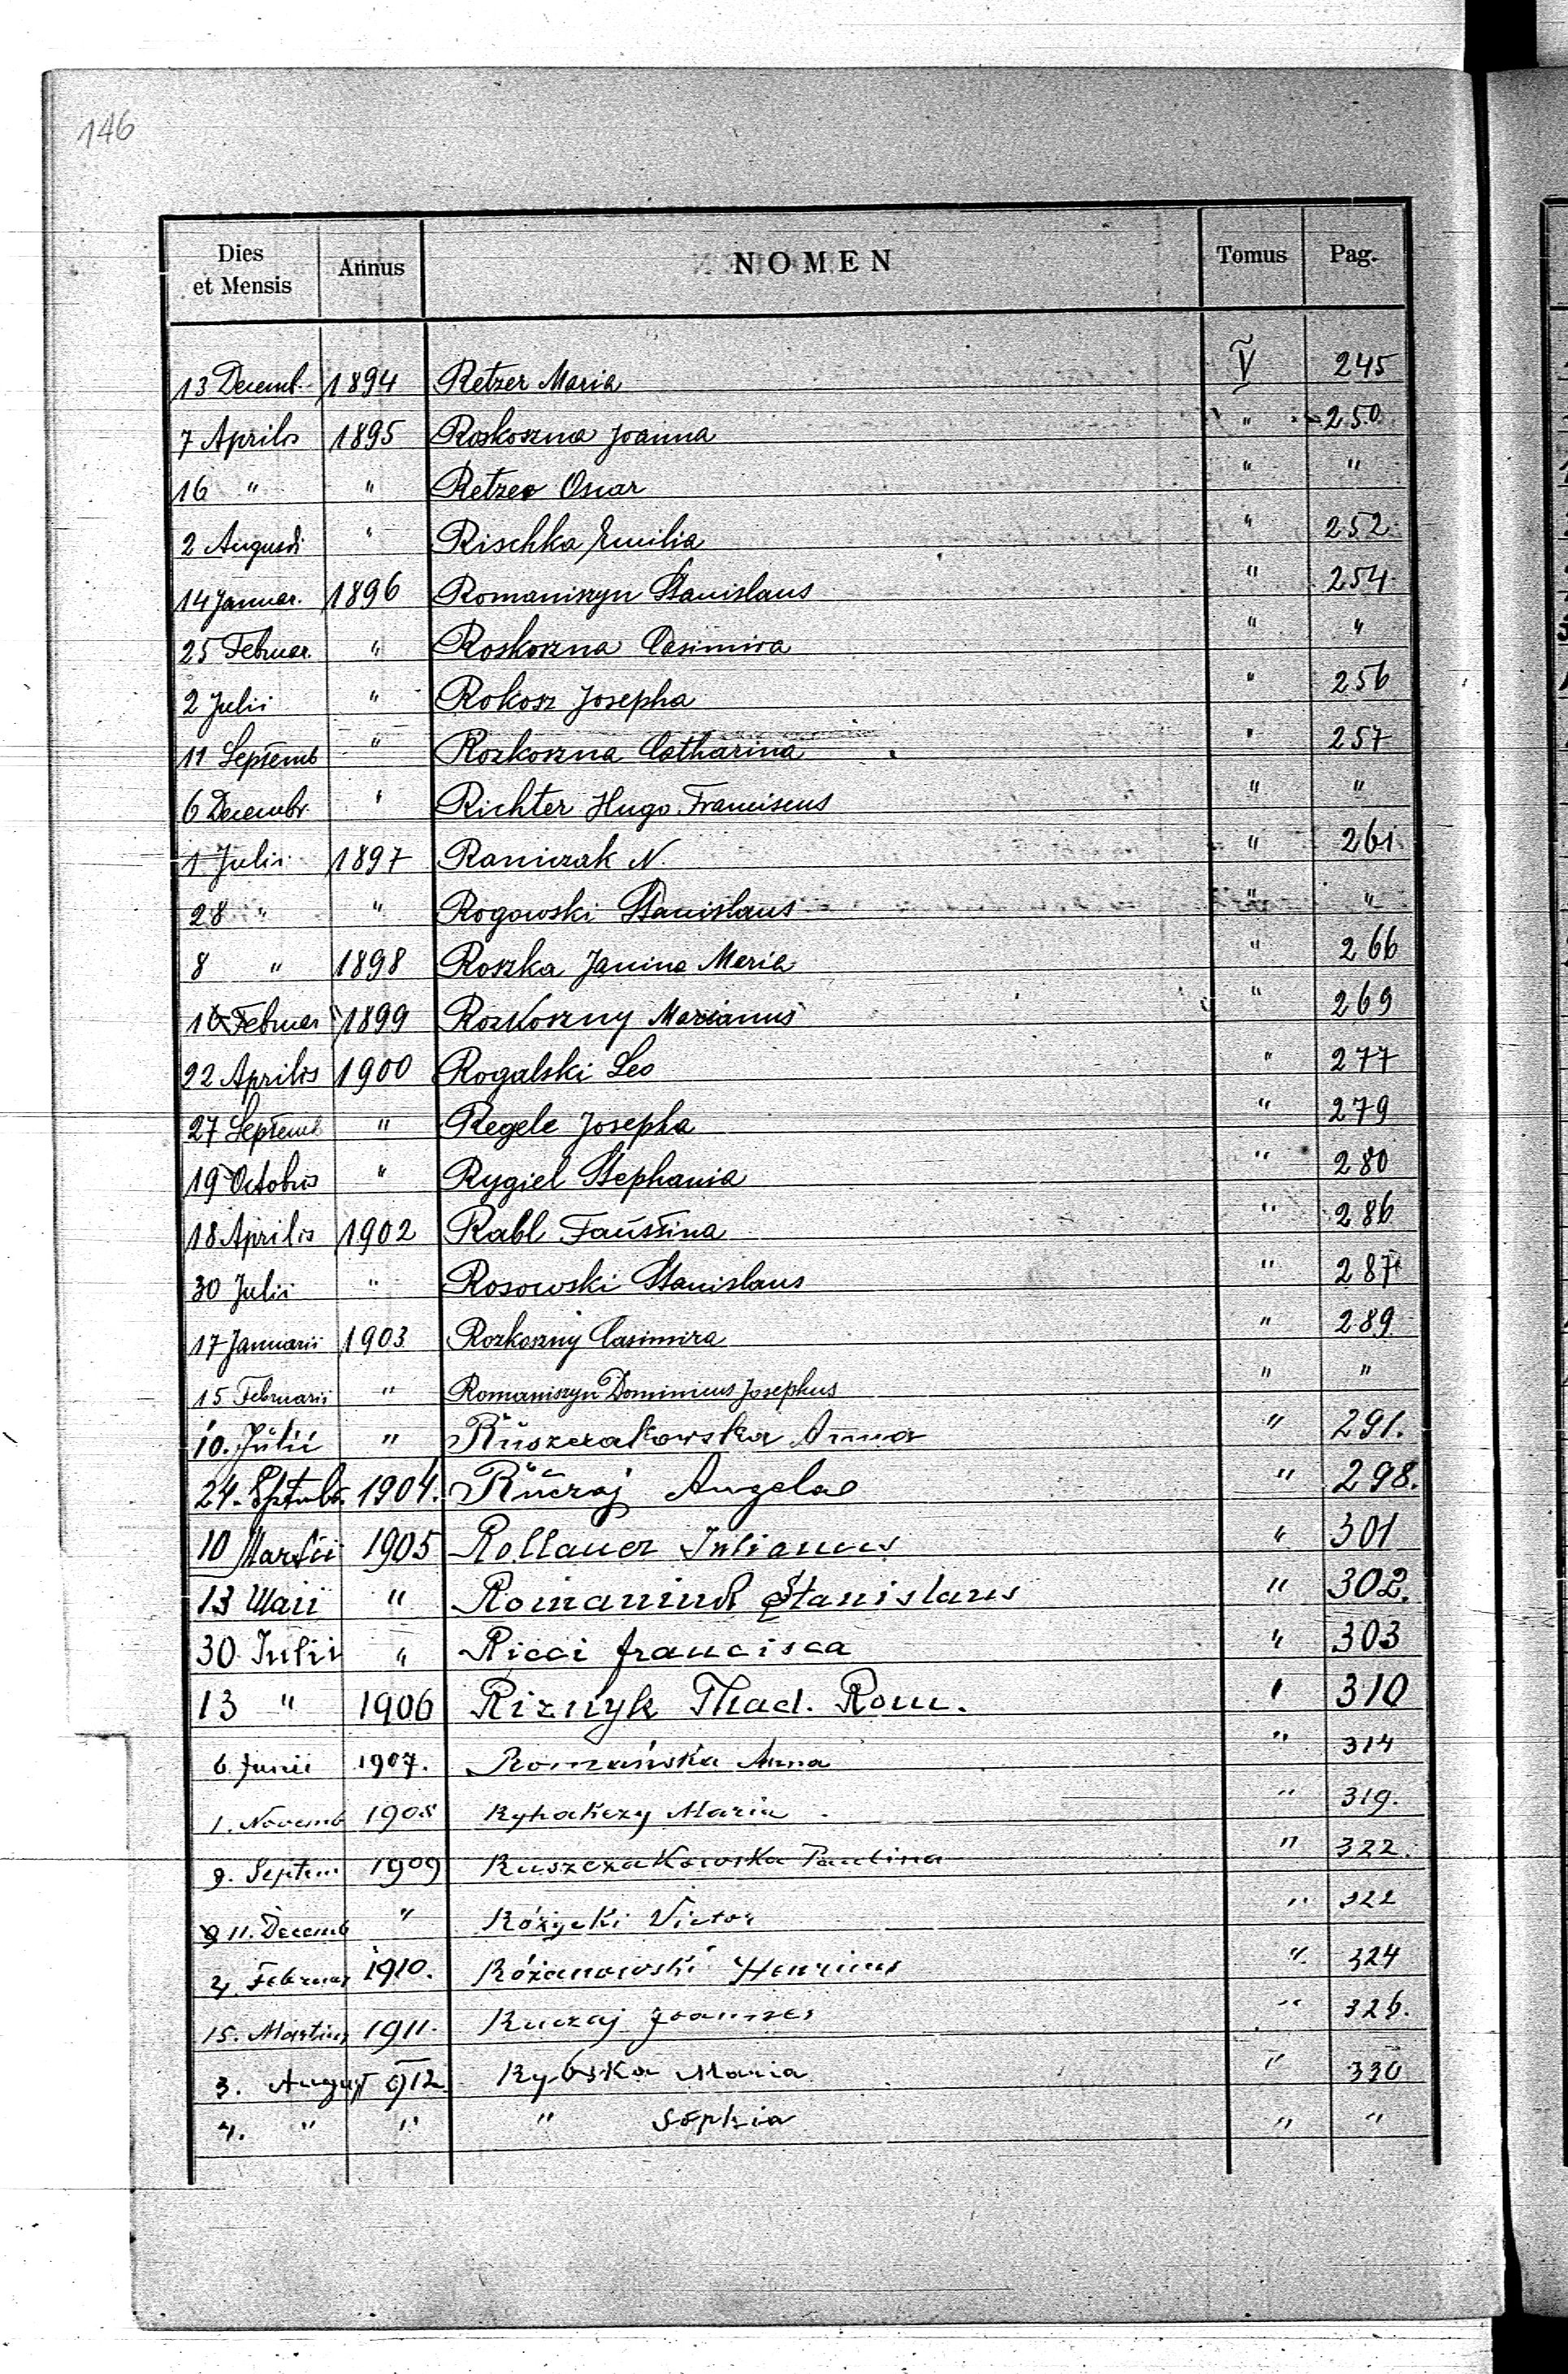 146
Dies et Mensis Annus NOMEN Tomus Pag.
13 Decemb. 1894 Retzer Maria V 245
7 Aprilis 1895 Roskoszna Joanna " 250
16 " " Retzer Oscar " "
2 Augusti " Rischka Emilia " 252
14 Januar. 1896 Romaniszyn Stanislaus " 254
25 Februar. " Roskoszna Casimira " "
2 Julii " Rokosz Josepha " 256
11 Septemb " Rozkoszna Catharina " 257
6 Decembr. " Richter Hugo Franciscus " "
1 Julii 1897 Raniczak N. " 261
28 " " Rogowski Stanislaus " "
8 " 1898 Roszka Janina Maria " 266
16 Februar 1899 Rozkoszny Marianus " 269
22 Aprilis 1900 Rogalski Leo " 277
27 Septemb " Regele Josepha " 279
19 Octobris " Rygiel Stephania " 280
18 Aprilis 1902 Rabl Faustina " 286
30 Julii " Rosowski Stanislaus " 287
17 Januarii 1903 Rozkoszny Casimira " 289
15 Februarii " Romaniszyn Dominicus Josephus " "
10. Julii " Ruszczakowska Anna " 291.
24. Septemb. 1904. Ruczaj Angela " 298.
10 Martii 1905 Rollauer Julianus " 301
13 Maii " Romaniuk Stanislaus " 302.
30 Julii " Ricci Francisca " 303
13 " 1906 Riznyk Thad. Rom. " 310
6 Junii 1907. Romańska Anna " 314
1. Novemb 1908 Maria " 319.
9. Septem 1909 Ruszczakowska Paulina " 322.
11. Decemb " Różycki Victor " 322
4. Februar 1910. Różanowski Henricus " 324
15. Martius 1911. Ruczaj Joannes " 326.
3. August 912 Rybska Maria " 330
4. " " " Sophia " "